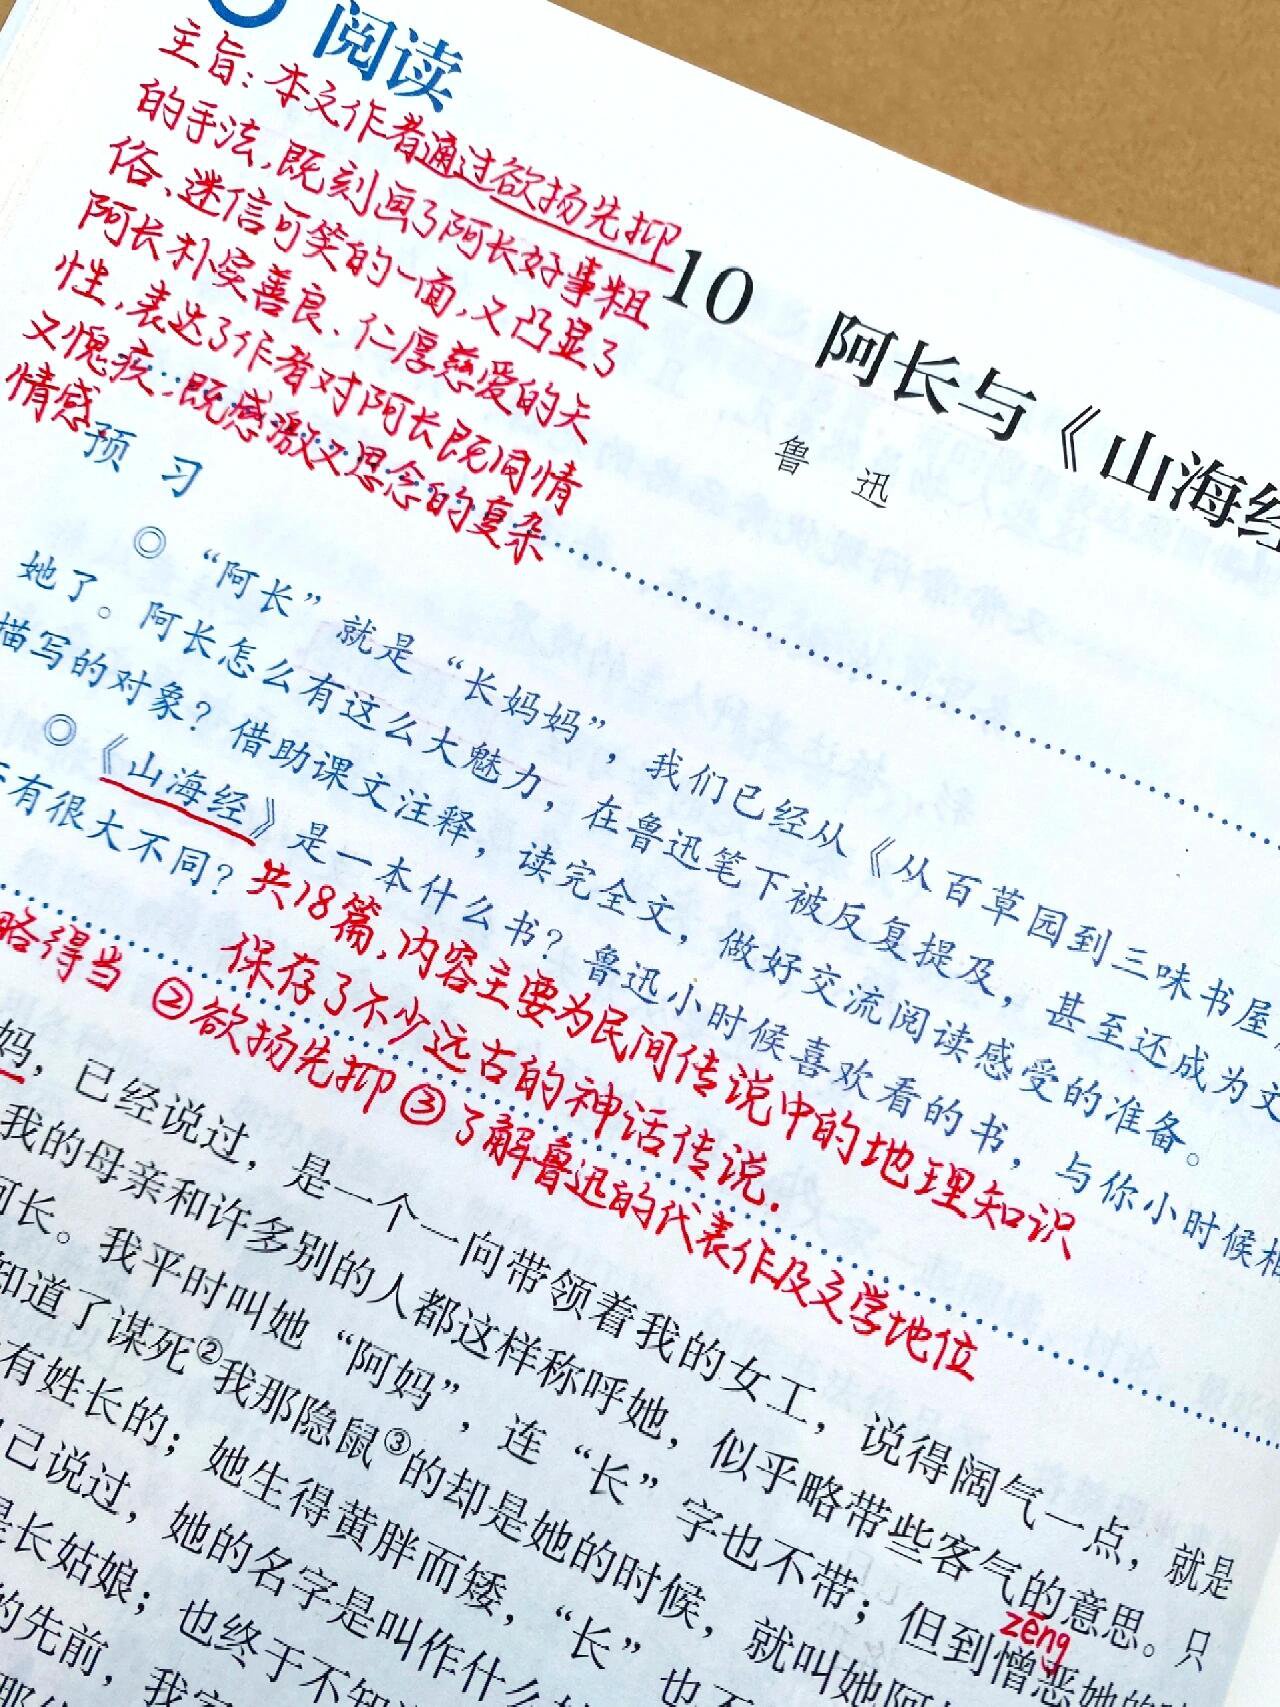 阅读
主旨：本文作者通过欲扬先抑
的手法，既刻画了阿长好事粗
俗、迷信可笑的一面，又凸显了
阿长朴实善良、仁厚慈爱的天
性，表达了作者对阿长既同情
又愧疚，既感激又思念的复杂
情感
10 阿长与《山海经
鲁迅
预习
◎“阿长”就是“长妈妈”，我们已经从《从百草园到三味书屋
她了。阿长怎么有这么大魅力，在鲁迅笔下被反复提及，甚至还成为文
描写的对象？借助课文注释，读完全文，做好交流阅读感受的准备。
◎《山海经》是一本什么书？鲁迅小时候喜欢看的书，与你小时候相
有很大不同？
共18篇，内容主要为民间传说中的地理知识
保存了不少远古的神话传说.
略得当 ②欲扬先抑 ③了解鲁迅的代表作及文学地位
妈，已经说过，是一个一向带领着我的女工，说得阔气一点，就是
我的母亲和许多别的人都这样称呼她，似乎略带些客气的意思。只
阿长。我平时叫她“阿妈”，连“长”字也不带；但到憎恶她的
zēng
知道了谋死②我那隐鼠③的却是她的时候，就叫她阿
有姓长的；她生得黄胖而矮，“长”也不
己说过，她的名字是叫作什么
是长姑娘；也终于不知道
的先前，我家